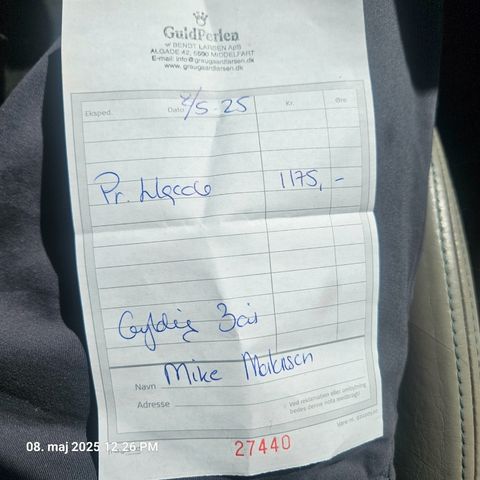 GuldPerlen
v/ BENDT LARSEN ApS
ALGADE 42, 5500 MIDDELFART
E-mail: info@graugaardlarsen.dk
www.graugaardlarsen.dk
Eksped. Dato 2/5-25 Kr. Øre
Pr. 1175,-
Gyldig 3 år
Navn Mike
Adresse
Ved reklamation eller ombytning
bedes denne nota medbragt
27440
08. maj 2025 12:26 PM